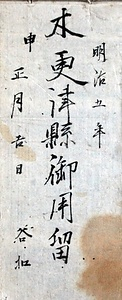 明治五年
木更津縣御用留
申
正月吉日